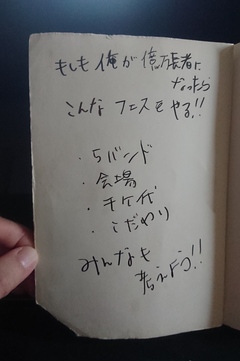 もしも俺が億万長者に
なったら
こんなフェスをやる!!
・5バンド
・会場
・チケ代
・こだわり
みんなも
考えよう!!